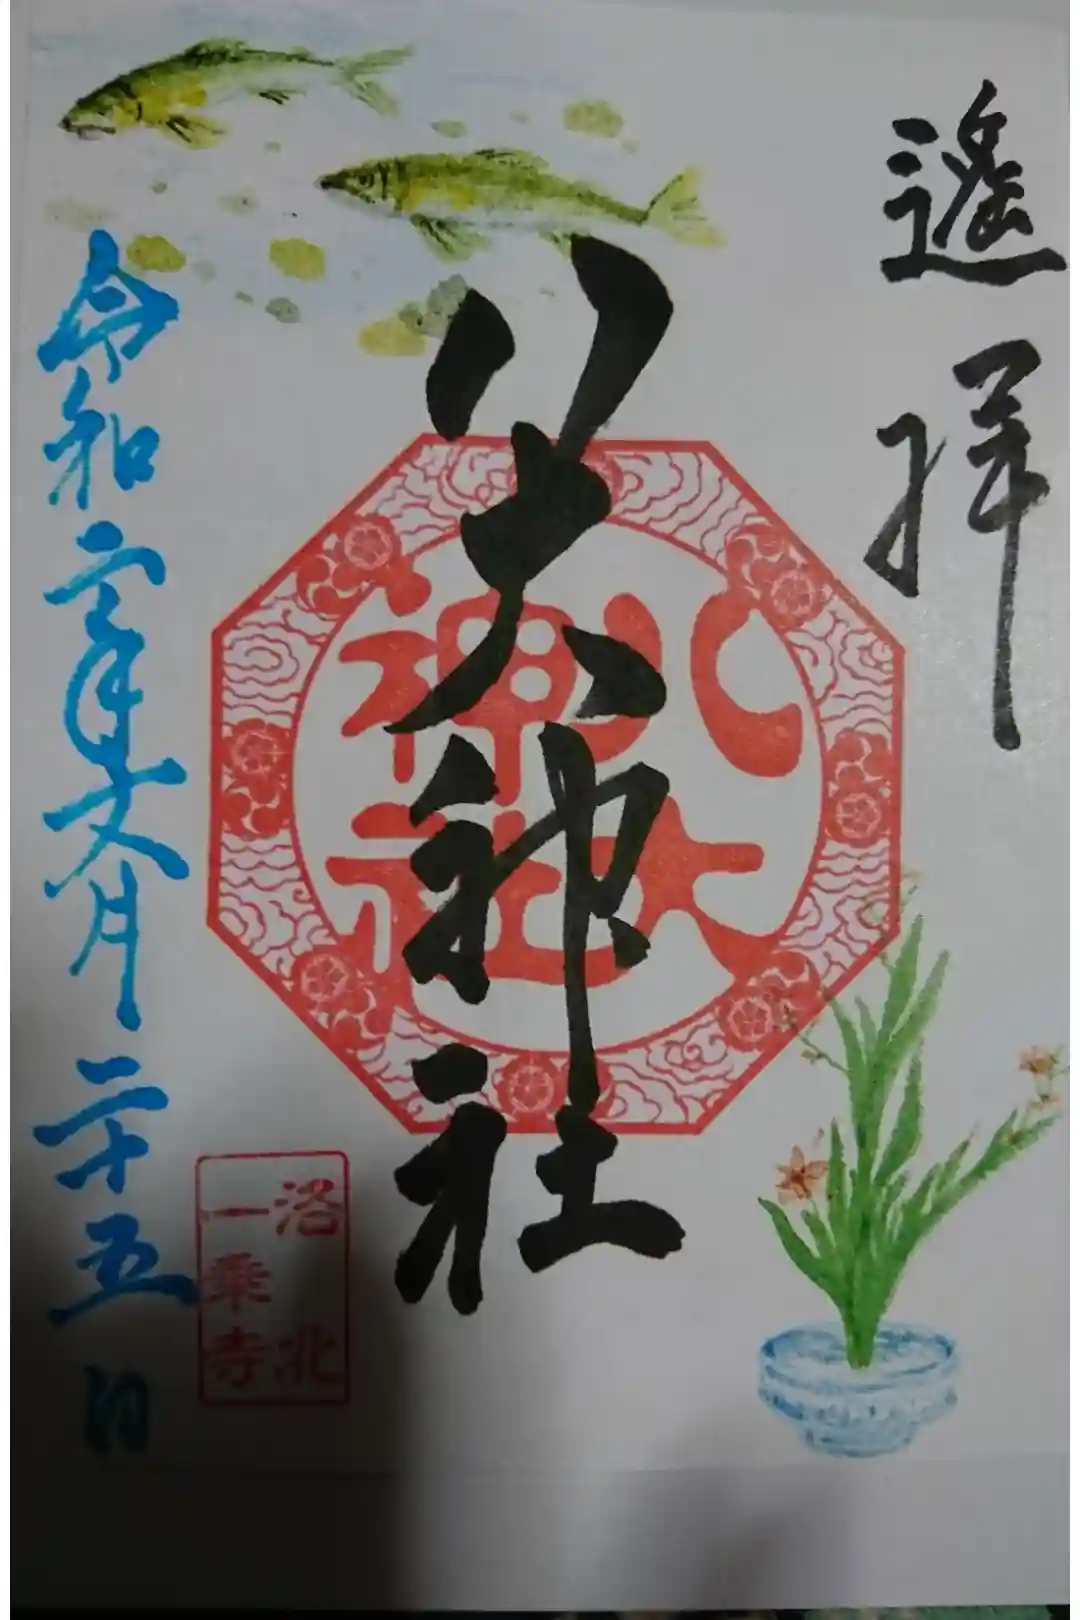 遙拝
八大神社
八大
神社
令和六年文月二十五日
洛北
一乗寺